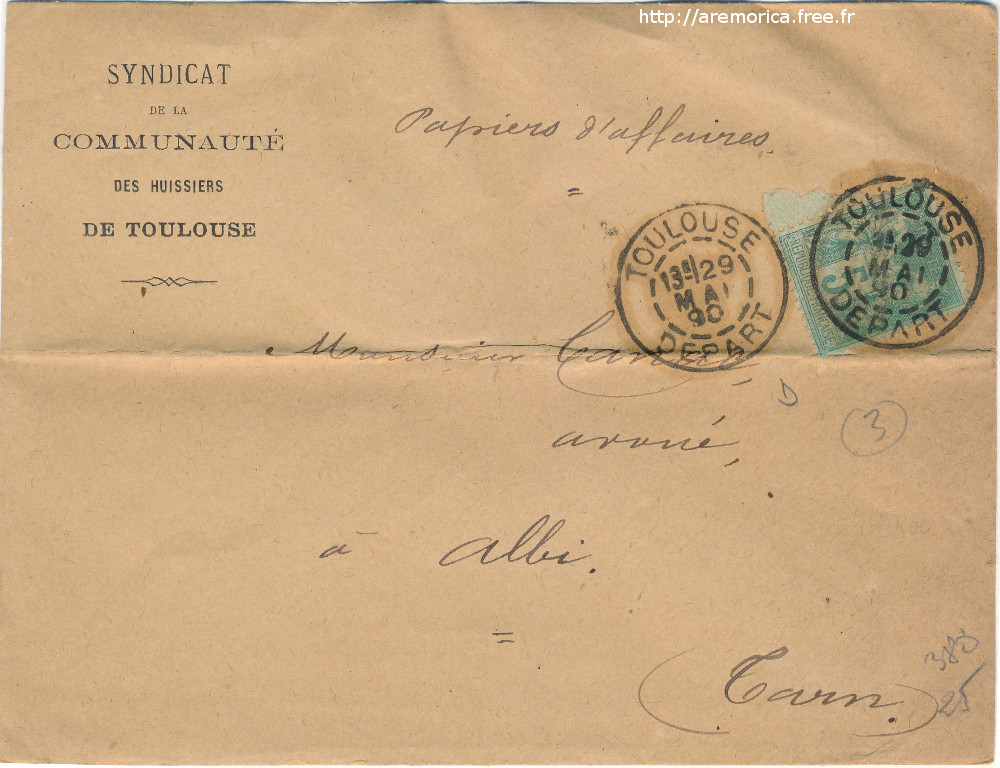 http://aremorica.free.fr
SYNDICAT
DE LA
COMMUNAUTÉ
DES HUISSIERS
DE TOULOUSE
Papiers d'affaires.
=
TOULOUSE
13E/29
MAI
90
DEPART
TOULOUSE
29
MAI
90
DEPART
5
Monsieur
D
3
avoué,
à Albi.
=
(Tarn.)
380
25